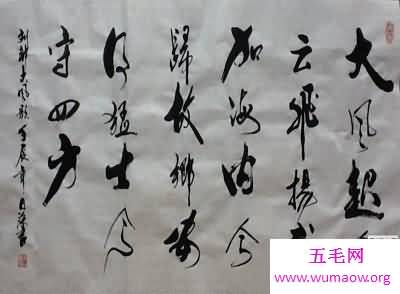 大风起兮
云飛揚威
加海内兮
歸故鄉安
得猛士兮
守四方
刘邦大风歌 壬辰年
五毛网
www.wumaow.org